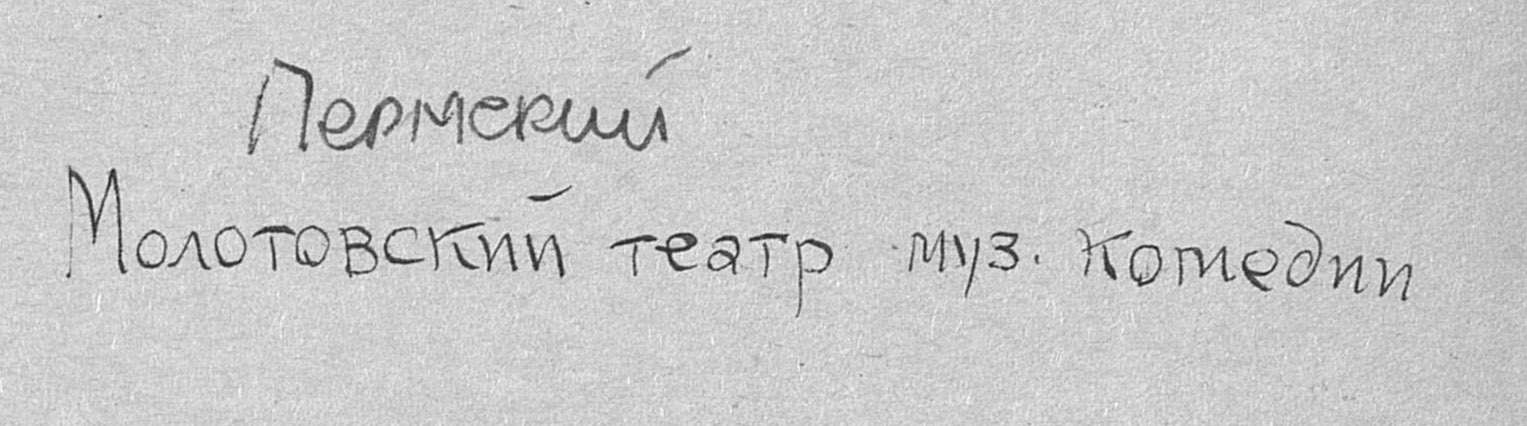 Пермский
Молотовский театр муз. комедии